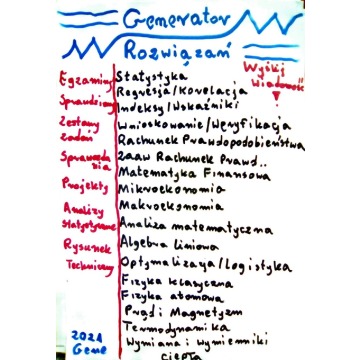 Generator
Rozwiązań
Wyślij
wiadomość
Egzaminy
Sprawdziany
Zestawy
zadań
Sprawozda
nia
Projekty
Analizy
Statystyczne
Rysunek
Techniczny
Statystyka
Regresja/Korelacja
Indeksy/Wskaźniki
Wnioskowanie/Weryfikacja
Rachunek Prawdopodobieństwa
Zaaw Rachunek Prawd..
Matematyka Finansowa
Mikroekonomia
Makroekonomia
Analiza matematyczna
Algebra liniowa
Optymalizacja/Logistyka
Fizyka klasyczna
Fizyka atomowa
Prąd i Magnetyzm
Termodynamika
Wymiana i wymienniki
ciepła
2021
Gene